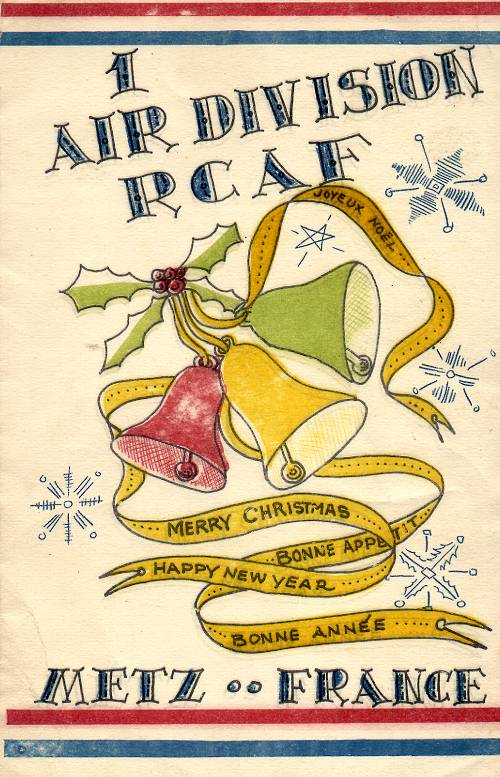 1
AIR DIVISION
RCAF
JOYEUX NOËL
MERRY CHRISTMAS
BONNE APPETIT
HAPPY NEW YEAR
BONNE ANNÉE
METZ •• FRANCE